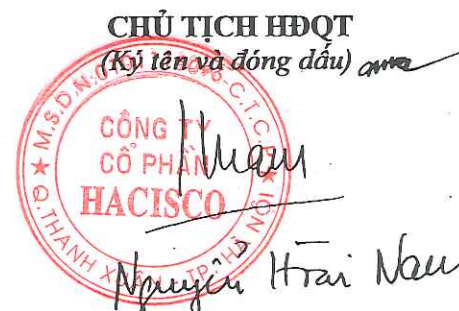 CHỦ TỊCH HĐQT
(Ký tên và đóng dấu)
M.S.D.N: C.T.C.P
CÔNG TY
CỔ PHẦN
HACISCO
Q. THANH XUÂN TP. HÀ NỘI
Nguyễn Hoài Nam